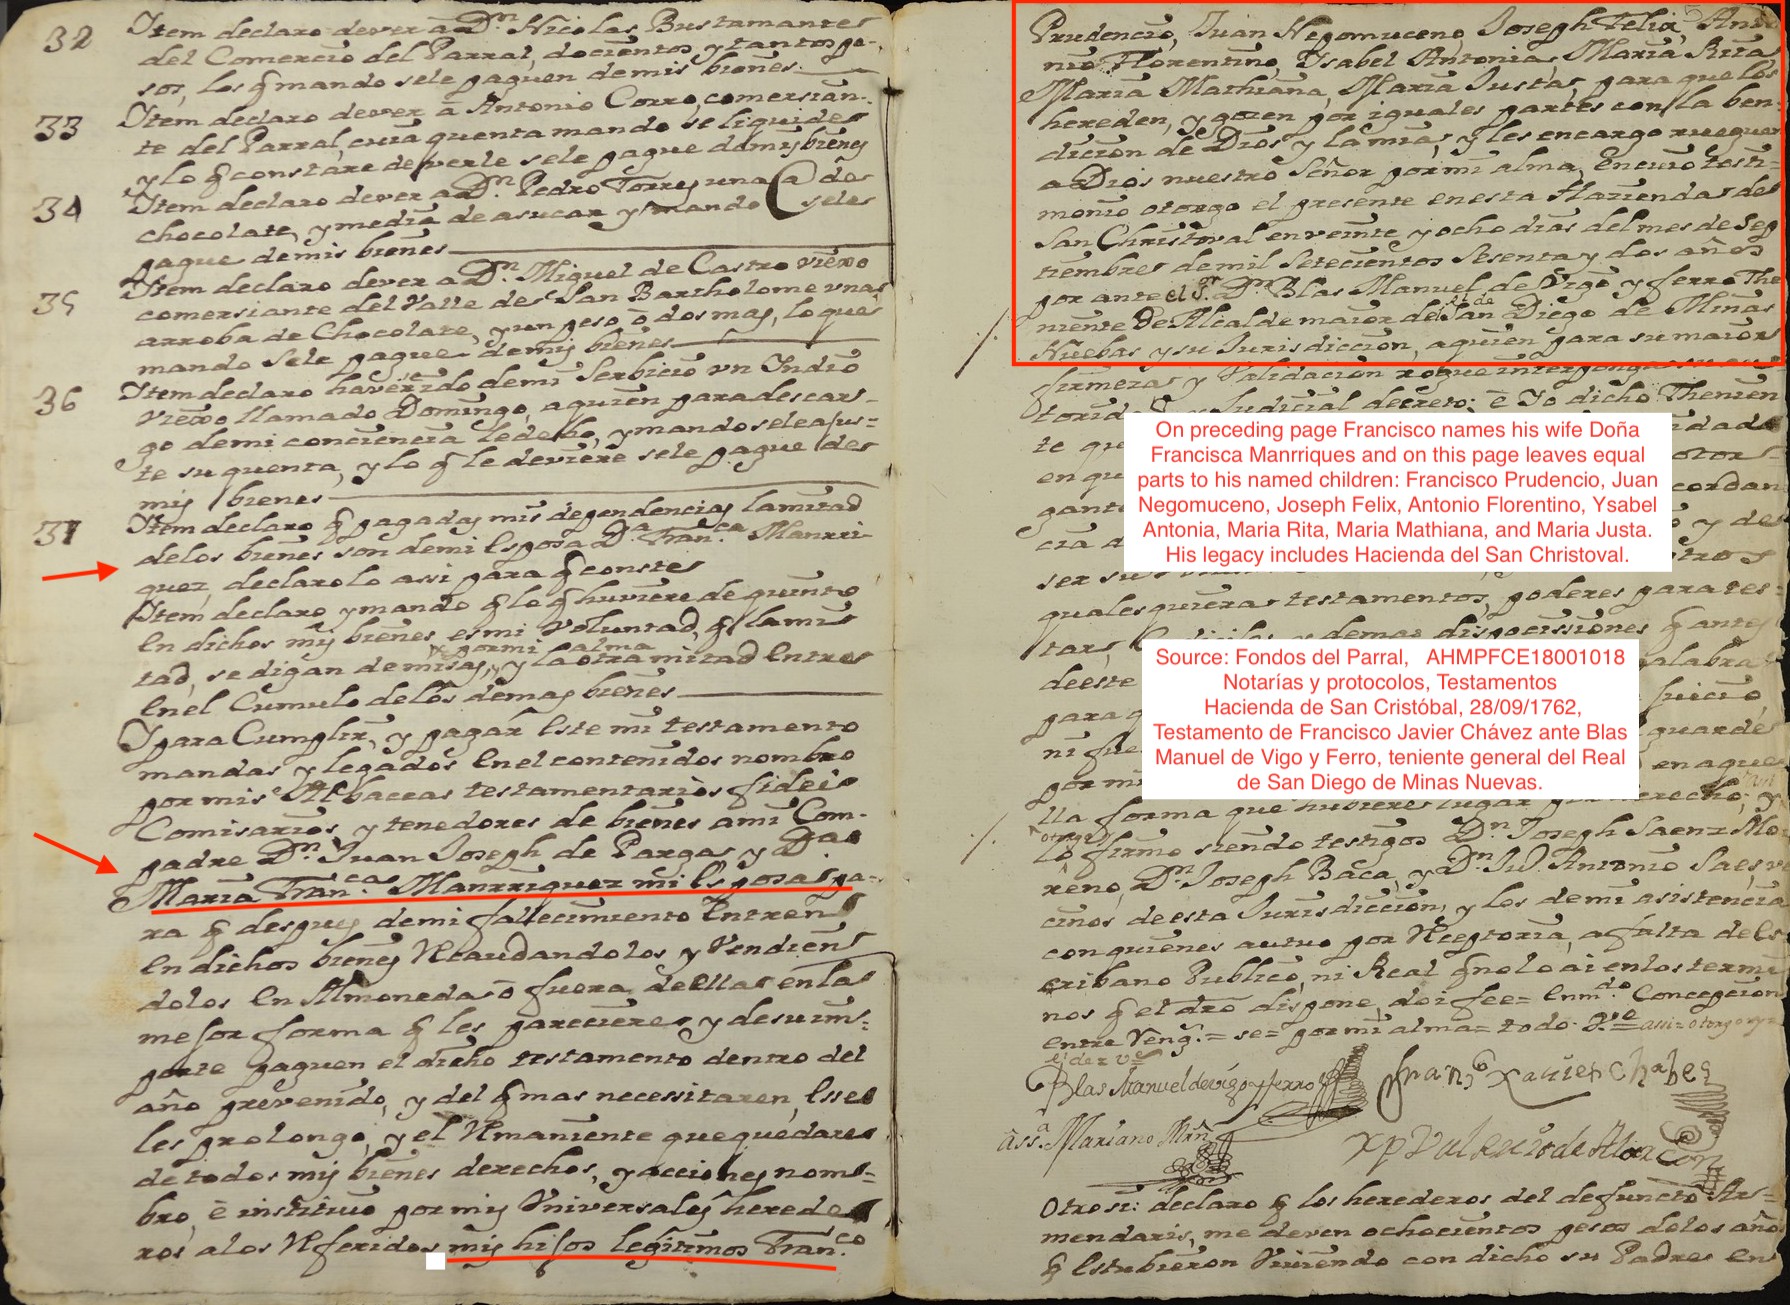 32 Ytem declaro dever â Dn. Nicolas Bustamantes
del Comercio del Parral, docientos, y tantos pe-
sos, los q̃ mando sele paguen demis bienes
33 Ytem declaro dever â Antonio Corro, comersian-
te del Parral, cuia quenta mando se liquide
y lo q̃ constare deverle sele pague demis bienes
34 Ytem declaro dever a Dn. Pedro Torres una @ de
chocolate, y media de asucar y mando seles
pague demis bienes
35 Ytem declaro dever a Dn. Miguel de Castro viexo
comersiante del Valle de San Bartholome vna
arroba de Chocolate, y un peso ô dos mas, lo que
mando sele pague demis bienes
36 Ytem declaro haverse ido demi Serbicio vn Indio
viexo llamado Domingo, aquien para descar-
go demi conciencia le debo, y mando sele ajus=
te su quenta, y lo q̃ le deviere sele pague de
mis bienes
37 Ytem declaro q̃ pagadas mis dependencias la mitad
delos bienes son demi Esposa Da. Franca. Manrri-
quez, declarolo assi para q̃ conste
Ytem declaro y mando q̃ lo q̃ huviere de quinto
En dichos mis bienes es mi Voluntad, q̃ la mi
por mi alma
tad, se digan de misas, y la otra mitad Entre
En el Cumulo delos demas bienes
Y para Cumplir, y pagar Este mi testamento
mandas y legados En el contenidos nombro
por mis Albaceas testamentarios fidei
Comisarios, y tenedores de bienes a mi Com-
padre Dn. Juan Joseph de Pargas y Da
Maria Francas. Manrriquez mi Esposa pa-
ra q̃ despues demi fallecimiento Entren
En dichos bienes Recaudandolos y Vendien
dolos En Almoneda ô fuera de ella en la
mejor forma q̃ les pareciere, y desu im=
porte paguen el dicho testamento dentro del
año prevenido, y del q̃ mas necessitaren, Esse
les prolongo, y el Remaniente que quedare
de todos mis bienes derechos, y acciones nom=
bro, è instituio por mis Vniversales herede
ros a los Referidos mis hijos legitimos Franco.
Prudencio, Juan Nepomuceno, Joseph Felix, Anto
nio Florentino, Ysabel Antonia, Maria Rita
Maria Mathiana, Maria Justa, para que los
hereden, y gozen por iguales partes con la ben-
dicion de Dios y la mia, y les encargo rueguen
a Dios nuestro Señor por mi alma, En cuio testi=
monio otorgo el presente en esta Hazienda de
San Christoval en veinte y ocho dias del mes de Sep
tiembre de mil setecientos sesenta y dos años
por ante el Sr. Dn. Blas Manuel de Vigo y ferro The
niente de Alcalde maior de San Diego de Minas
Nuebas y su Jurisdiccion, aquien para su maior
firmeza y Validacion ruego interponga su au
torid Judicial decreto; è Yo dicho Thenien
te que
On preceding page Francisco names his wife Doña
Francisca Manrriques and on this page leaves equal
parts to his named children: Francisco Prudencio, Juan
Negomuceno, Joseph Felix, Antonio Florentino, Ysabel
Antonia, Maria Rita, Maria Mathiana, and Maria Justa.
His legacy includes Hacienda del San Christoval.
quales quiera testamentos, poderes para tes-
tar, Codicilos y demas dispocissiones q̃ antes
Source: Fondos del Parral, AHMPFCE18001018
Notarías y protocolos, Testamentos
Hacienda de San Cristóbal, 28/09/1762,
Testamento de Francisco Javier Chávez ante Blas
Manuel de Vigo y Ferro, teniente general del Real
de San Diego de Minas Nuevas.
lla forma que hubiere lugar por derecho, y
otorgo
lo firmo siendo testigos Dn. Joseph Saenz Mo-
reno, Dn. Joseph Baca, y Dn. Ju. Antonio Saes, ve
cinos de esta Jurisdiccion, y los demi asistencia
con quienes autuo por Receptoria, a falta de Es-
cribano Publico, ni Real q̃ no lo ai en los termi
nos q̃ el dro dispone, doi fee= Enmdo. Concepcion
entre Reng.= se= por mi alma= todo Ve
Blas Manuel de vigo y ferro
Franco Xavier Chabes
Assa. Mariano
Xpl Valerio de Alarcon
Otrosi: declaro q̃ los herederos del defuncto Ar=
mendaris, me deven ochocientos pesos delos años
q̃ Estubieron Viviendo con dicho su Padre En